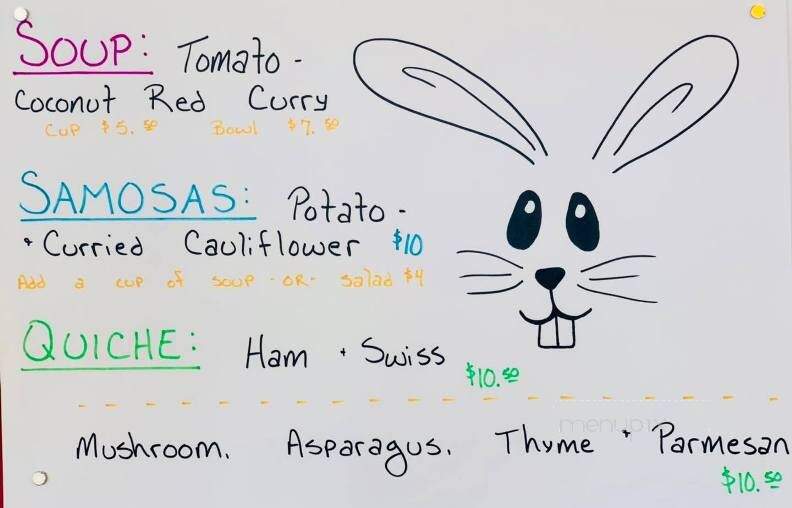 SOUP: Tomato -
Coconut Red Curry
Cup $5.50 Bowl $7.50
SAMOSAS: Potato -
+ Curried Cauliflower $10
Add a cup of soup - OR - salad $4
QUICHE: Ham + Swiss
$10.50
Mushroom, Asparagus, Thyme + Parmesan
$10.50